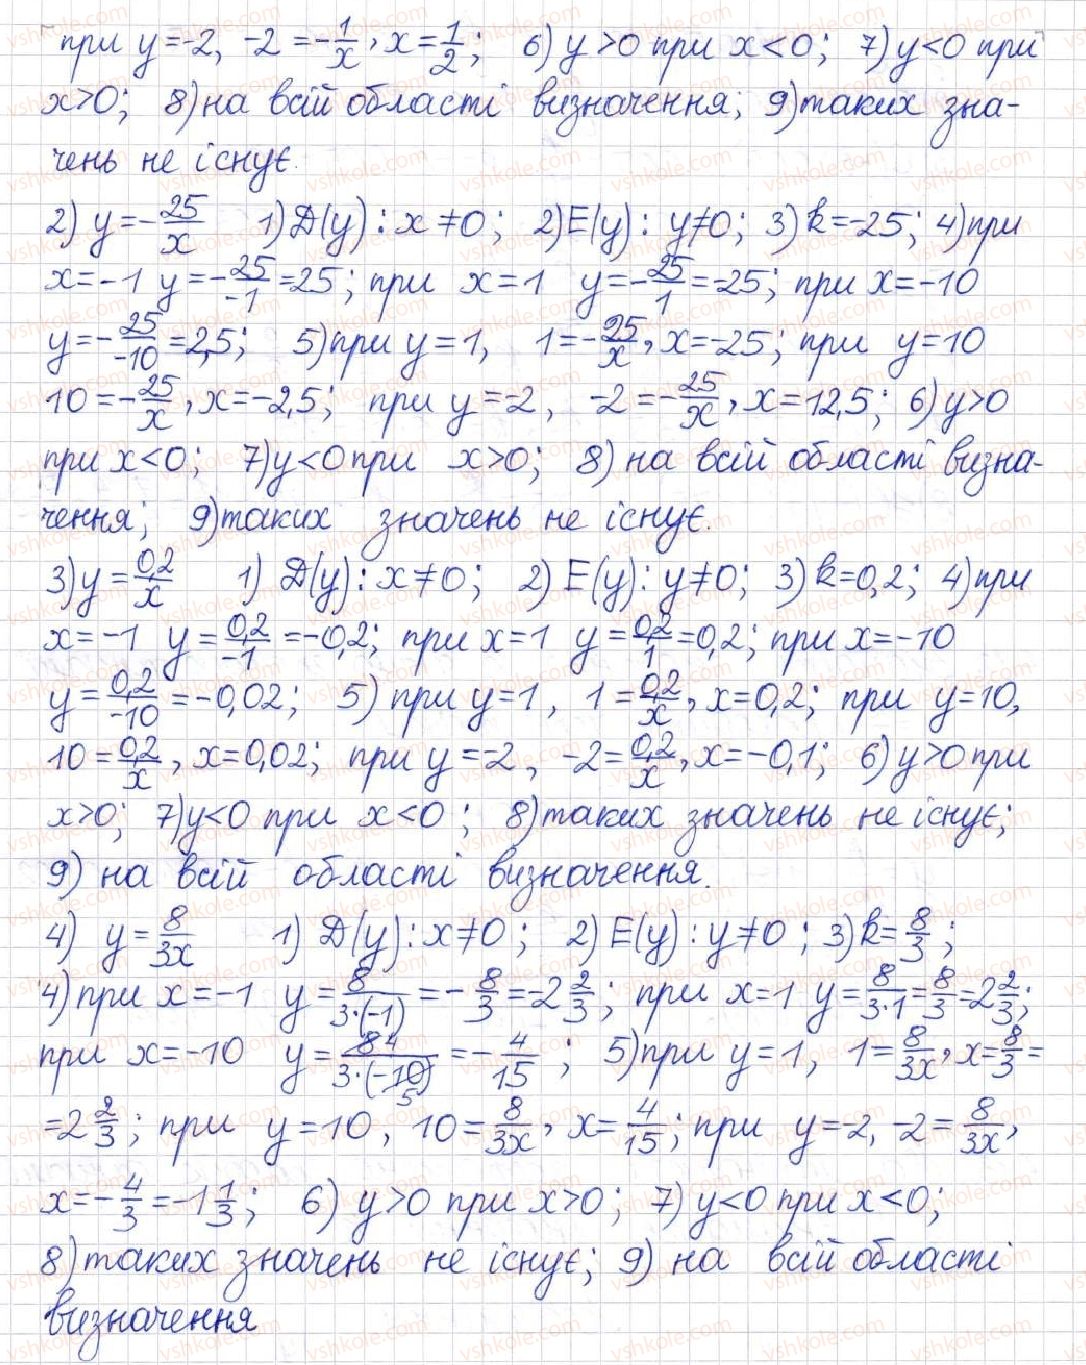 при y=-2, -2=-1/x, x=1/2; 6) y>0 при x<0; 7) y<0 при
x>0; 8) на всій області визначення; 9) таких зна-
чень не існує.
2) y=-25/x 1) D(y): x≠0; 2) E(y): y≠0; 3) k=-25; 4) при
x=-1 y=-25/-1=25; при x=1 y=-25/1=-25; при x=-10
y=-25/-10=2,5; 5) при y=1, 1=-25/x, x=-25; при y=10
10=-25/x, x=-2,5; при y=-2, -2=-25/x, x=12,5; 6) y>0
при x<0; 7) y<0 при x>0; 8) на всій області визна-
чення; 9) таких значень не існує.
3) y=0,2/x 1) D(y): x≠0; 2) E(y): y≠0; 3) k=0,2; 4) при
x=-1 y=0,2/-1=-0,2; при x=1 y=0,2/1=0,2; при x=-10
y=0,2/-10=-0,02; 5) при y=1, 1=0,2/x, x=0,2; при y=10,
10=0,2/x, x=0,02; при y=-2, -2=0,2/x, x=-0,1; 6) y>0 при
x>0; 7) y<0 при x<0; 8) таких значень не існує;
9) на всій області визначення.
4) y=8/3x 1) D(y): x≠0; 2) E(y): y≠0; 3) k=8/3;
4) при x=-1 y=8/3·(-1)=-8/3=-2 2/3; при x=1 y=8/3·1=8/3=2 2/3;
при x=-10 y=8 4/3·(-10) 5=-4/15; 5) при y=1, 1=8/3x, x=8/3=
=2 2/3; при y=10, 10=8/3x, x=4/15; при y=-2, -2=8/3x,
x=-4/3=-1 1/3; 6) y>0 при x>0; 7) y<0 при x<0;
8) таких значень не існує; 9) на всій області
визначення